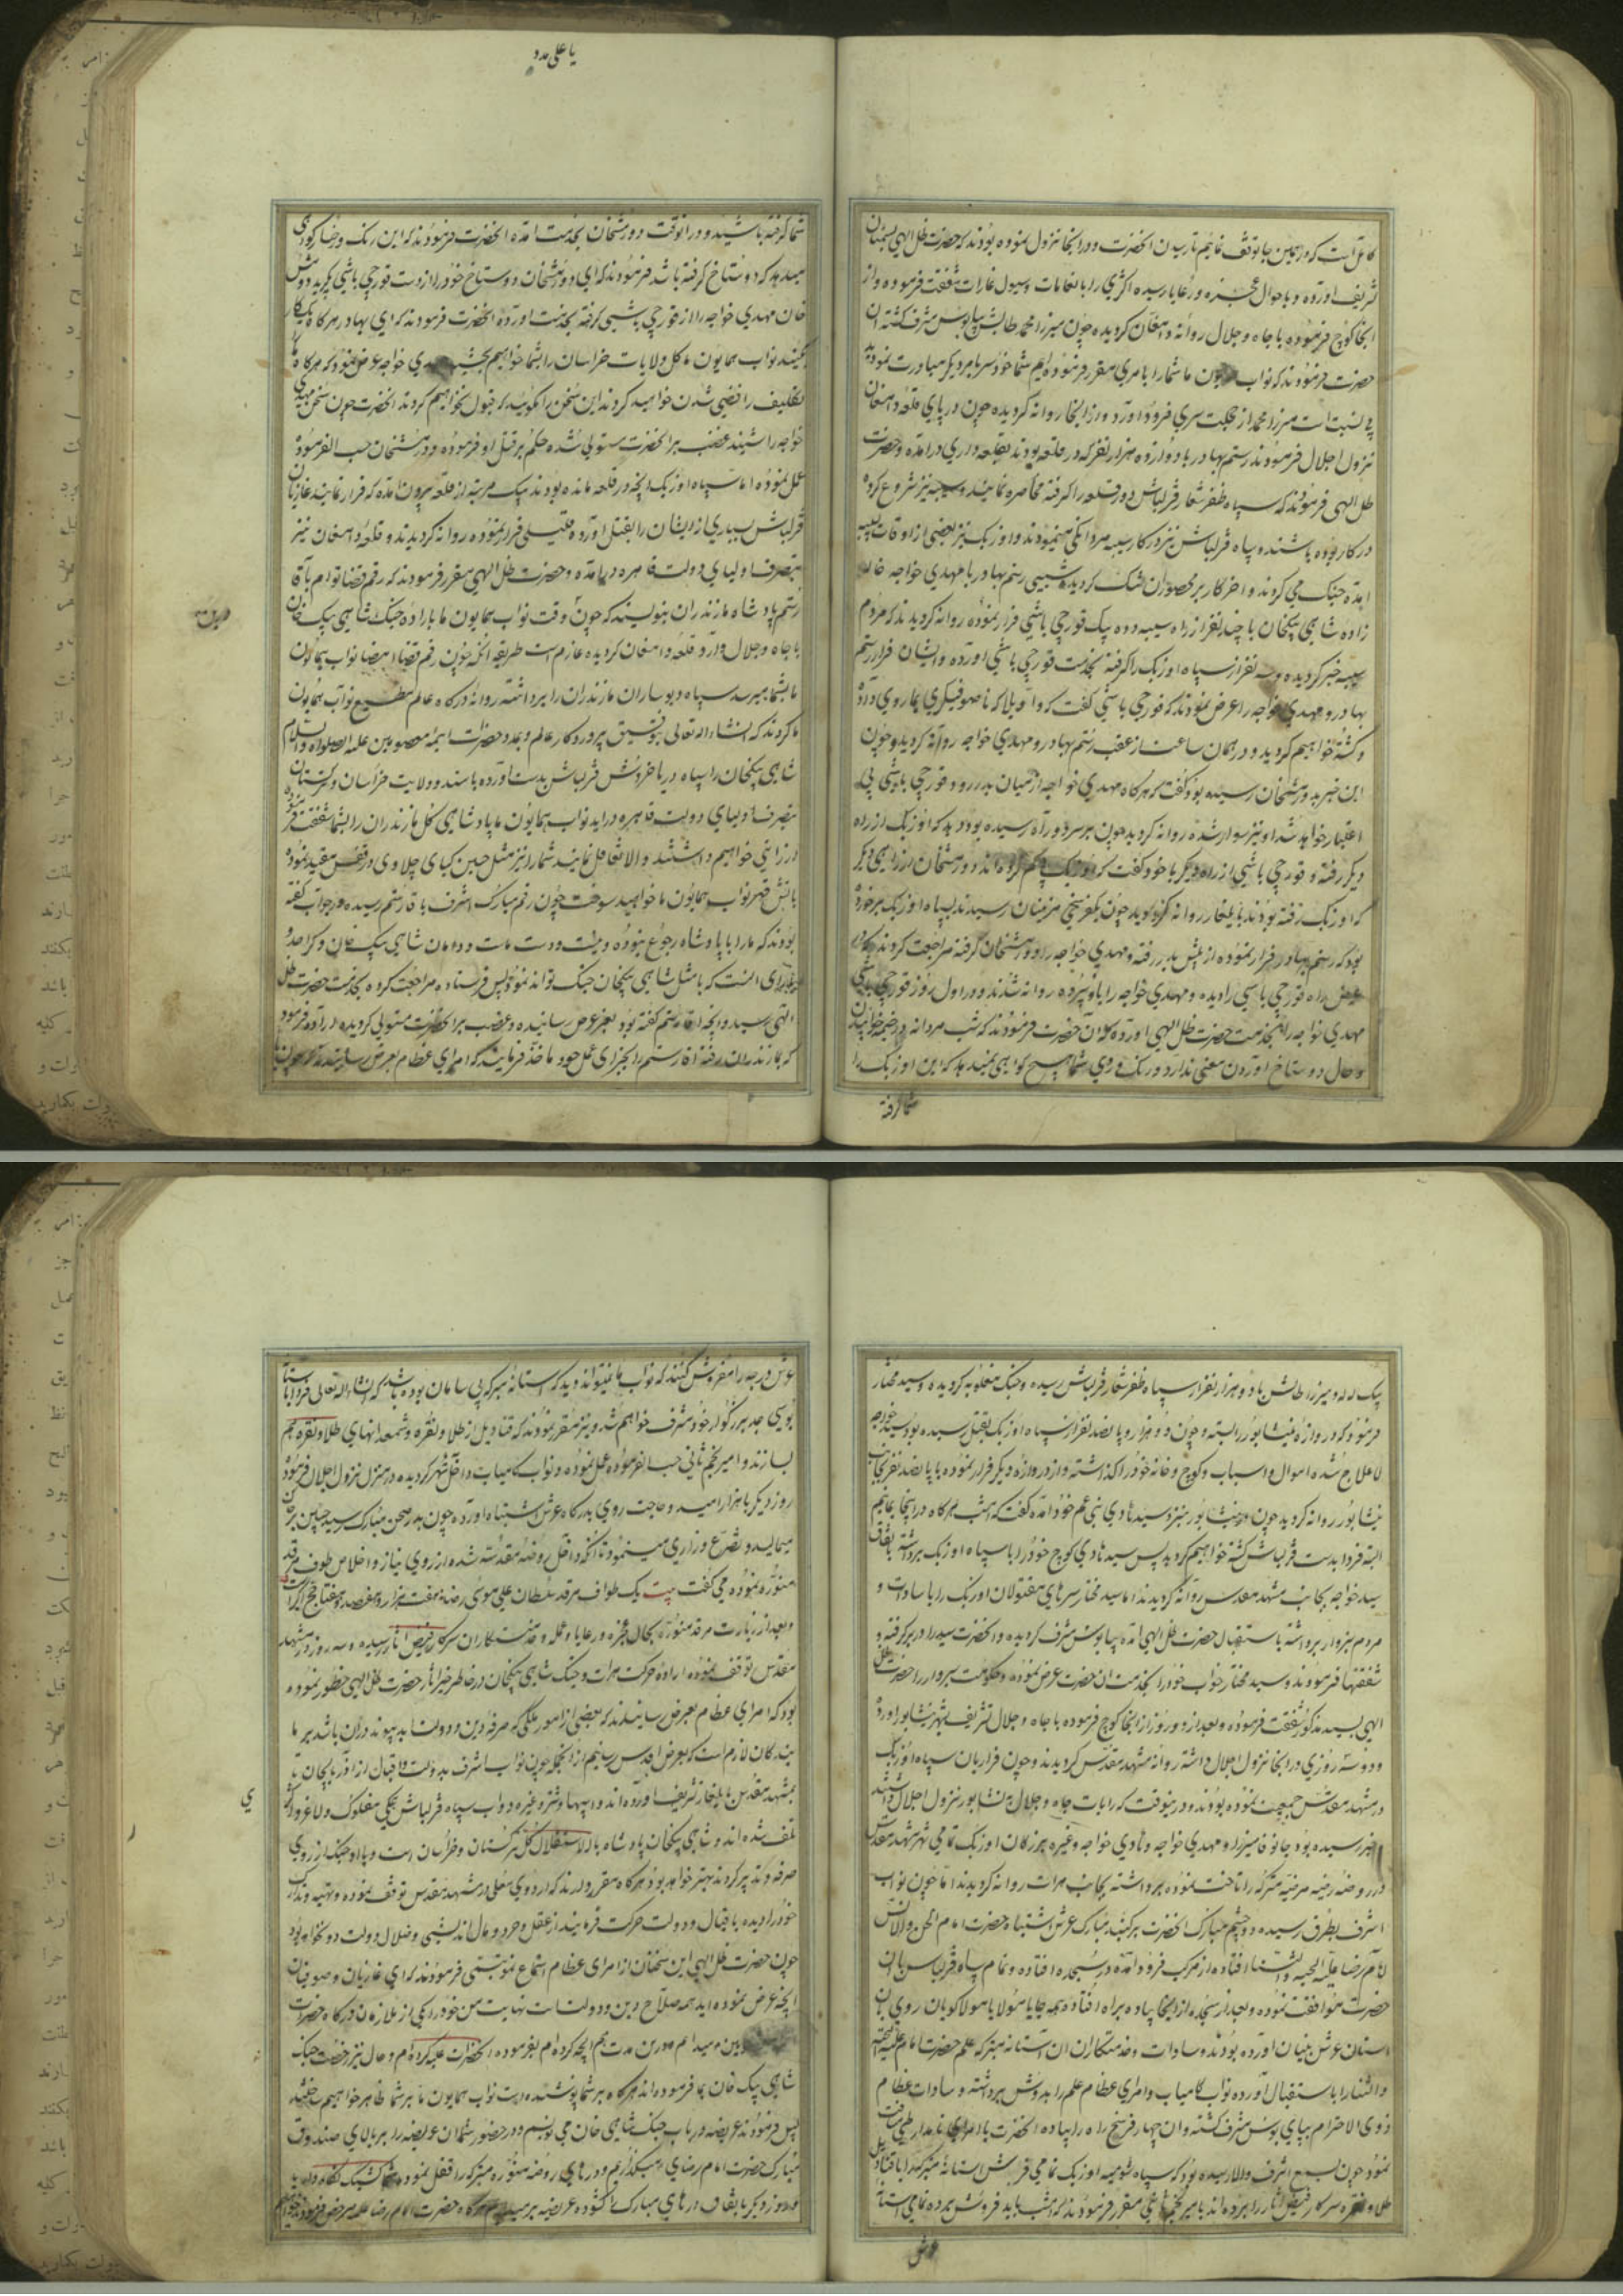 یا علی مدد
کامل است که در همین جا توقف نمائیم تا رسیدن انحضرت و در انجا نزول نموده بودند که حضرت ظل الهی
تشریف اورده و باحوال عجزه و رعایا رسیده اکثری را بانعامات و سیورغارات شفقت فرموده و از
انجا کوچ فرموده باجاه و جلال روانه دامغان کردیده چون میرزا محمد طالش بپابوس مشرف کشته ان
حضرت فرمودند که نواب همایون ما شما را بامری مقرر فرموده ایم شما خودسر بامر دیکر مبادرت نمودید
نزول اجلال فرمودند رستم بهادر با دوازده هزار نفر که در قلعه بودند بقلعه داری درامده و حضرت
ظل الهی فرمودند که سپاه ظفر شعار قزلباش دور قلعه را کرفته محاصره نمایند و سیبه نیز شروع کرده
در کار بوده باشند و سپاه قزلباش نیز در کار سیبه مردانکی مینمودند و اوزبک نیز بعضی از اوقات بسیبه
امده جنک می کردند و اخر کار بر محصوران تنک کردیده شبی رستم بهادر با مهدی خواجه خاله
زاده شاهی بیکخان با چند نفر از راه سیبه دده بیک قورچی باشی فرار نموده روانه کردیدند که مردم
سیبه خبر کردیده و سه نفر از سپاه اوزبک را کرفته بخدمت قورچی باشی اورده و ایشان فرار رستم
بهادر و مهدی خواجه را عرض نمودند که قورچی باشی کفت که واویلا که ناصوفیکری بما روی داده
و کشته خواهیم کردید و در همان ساعت از عقب رستم بهادر و مهدی خواجه روانه کردید و چون
این خبر بدورمشخان رسیده بود کفت که هرکاه مهدی خواجه از میان بدر رود قورچی باشی بی
اعتبار خواهد شد او نیز سوار شده روانه کردید چون بر سر دو راه رسیده بود دید که اوزبک از راه
دیکر رفته و قورچی باشی از راه دیکر با خود کفت که اوزبک پی کم کرده اند دورمشخان از راهی دیکر
که اوزبک رفته بودند بایلغار روانه کردید چون بیکفرسخی مزینان رسیدند بسپاه اوزبک برخورده
بود که رستم بهادر فرار نموده از پیش بدر رفته و مهدی خواجه را دورمشخان کرفته مراجعت کردند که در
عرض راه قورچی باشی را دیده و مهدی خواجه را باو سپرده روانه شدند و در اول روز قورچی باشی
مهدی خواجه را بخدمت حضرت ظل الهی اورده که ان حضرت فرمودند که شب مردانه در خیمه خوابیدن
و حال دوستاخ اوردن معنی ندارد و رنک و روی شما هیچ کواهی نمیدهد که این اوزبک را
شما کرفته
شما کرفته باشید و در انوقت دورمشخان بخدمت امده انحضرت فرمودند که این رنک و رخسار کواهی
میدهد که دوستاخ کرفته باشد فرمودند که ای دورمشخان دوستاخ خود را از دست قورچی باشی بکیرید دورمش
خان مهدی خواجه را از قورچی باشی کرفته بخدمت اورده انحضرت فرمودند که ای بهادر هرکاه یک کار
بکنید نواب همایون ما کل ولایات خراسان را بشما خواهیم بخشید مهدی خواجه عرض نمود که هرکاه ما
تکلیف رافضی شدن خواهید کرد این سخن را مکوئید که قبول نخواهیم کرد انحضرت چون سخن مهدی
خواجه را شنیدند غضب بر انحضرت مستولی شده حکم بر قتل او فرموده دورمشخان حسب الفرموده
عمل نموده اما سپاه اوزبک انچه در قلعه مانده بودند بیک مرتبه از قلعه بیرون امده که فرار نمایند غازیان
قزلباش بسیاری از ایشان را بقتل اورده قلیلی فرار نموده روانه کردیدند و قلعه دامغان نیز
بتصرف اولیای دولت قاهره درامده و حضرت ظل الهی مقرر فرمودند که رقم قضا توام باقا
رستم پادشاه مازندران بنویسند که چون وقت نواب همایون ما باراده جنک شاهی بیک خان
باجاه و جلال وارد قلعه دامغان کردیده عازم است طریقه انکه چون رقم قضا امضا نواب همایون
ما بشما میرسد سپاه و یوساران مازندران را برداشته روانه درکاه عالم مطیع نواب همایون
ما کردند که انشاء الله تعالی بتوفیق پروردکار عالم و بمدد حضرات ائمه معصومین علیه الصلواة والسلام
شاهی بیکخان را سپاه دریا خروش قزلباش بدست اورده باشند و ولایت خراسان و ترکستان
بتصرف اولیای دولت قاهره دراید نواب همایون ما پادشاهی کل مازندران را بشما شفقت فرموده
ارزانی خواهیم داشت و الا تغافل نمایند شما را نیز مثل حسین کیای چلاوی در قفس مقید نموده
باتش قهر نواب همایون ما خواهید سوخت چون رقم مبارک اشرف باقا رستم رسیده در جواب کفته
بودند که ما را با پادشاه رجوع نبوده و نیست و دست مات و دامان شاهی بیک خان و کرا حد و
یارای انست که با مثل شاهی بیکخان جنک تواند نمود پس فرستاده مراجعت کرده بخدمت حضرت ظل
الهی رسید و انچه اقا رستم کفته بود بعز عرض رسانیده و غضب بر انحضرت مستولی کردیده اراده فرمود
که بمازندران رفته اقا رستم را بجزای عمل خود ماخذ فرمایند که امرای عظام بعرض رسانیدند که چون
بیک لله و میرزا طالش با دو هزار نفر از سپاه ظفر شعار قزلباش رسیده و جنک مغلوبه کردیده و سید مختار
فرمود که دروازه نیشابور را بسته و چون دو هزار و پانصد نفر از سپاه اوزبک بقتل رسیده بود سید خواجه
لاعلاج شده اموال و اسباب و کوچ و خانه خود را کذاشته و از دروازه دیکر فرار نموده با پانصد نفر بجانب
نیشابور روانه کردید چون در نیشابور بمنزل سید هادی بنی عم خود امده کفت که امشب هرکاه در اینجا بمانیم
البته فردا بدست قزلباش کشته خواهیم کردید پس سید هادی کوچ خود را با سپاه اوزبک برداشته باتفاق
سید خواجه بجانب مشهد مقدس روانه کردیدند اما سید مختار سرهای مقتولان اوزبک را با سادات و
مردم سبزوار برداشته باستقبال حضرت ظل الهی امده بپابوس مشرف کردیده و انحضرت سید را در بر کرفته و
شفقتها فرمودند و سید مختار خواب خود را بخدمت ان حضرت عرض نموده و حکومت سبزوار را حضرت ظل
الهی بسید مذکور شفقت فرموده و بعد از دو روز از انجا کوچ فرموده باجاه و جلال تشریف بشهر نیشابور اورده
و دو سه روزی در انجا نزول اجلال داشته روانه مشهد مقدس کردیدند و چون فراریان سپاه اوزبک
در مشهد مقدس جمعیت نموده بودند و در ینوقت که رایات جاه و جلال به نشابور نزول اجلال داشتند
خبر رسیده بود جانوفا میرزا و مهدی خواجه و هادی خواجه و غیره بزرکان اوزبک تمامی شهر مشهد مقدس
و در روضه رضیه مرضیه متبرکه را تاخت نموده برداشته بجانب هرات روانه کردیدند اما چون نواب
اشرف بطرق رسیده و چشم مبارک انحضرت بر کنبد مبارک عرش اشتباه حضرت امام الجن والانس
امام رضا علیه التحیه والثنا افتاده از مرکب فرود امده در سجده افتاده و تمام سپاه قزلباس بان
حضرت موافقت نموده و بعد از سجده از انجا پیاده براه افتاده همه جا یا مولا یا مولا کویان روی بان
استان عرش بنیان اورده بودند و سادات و خدمتکاران ان آستانه متبرکه علم حضرت امام علیه التحیه
والثنا را باستقبال اورده نواب کامیاب و امرای عظام علم را بدوش برداشته و سادات عظام
ذوی الاحترام بپای بوس مشرف کشته و ان چهار فرسخ راه را پیاده انحضرت با امرای نامدار طی مسافت
نمود چون بسمع اشرف والا رسیده بود که سپاه شومیه اوزبک تمامی فرش استانه متبرکه را با قنادیل
طلا و نقره سرکار فیض اثار را برده اند بامیر نجم ثانی مقرر فرمودند که امشب باید فروش برده تمامی استانه
عرش
عرش درجه را مفروش کنند که نواب ما نمیتواند دید که استانه متبرکه بی سامان بوده باشد که انشاء الله تعالی فردا باستان
بوسی جد بزرکوار خود مشرف خواهم شد و نیز مقرر نمودند که قنادیل از طلا و نقره و شمعدانهای طلا و نقره هم
بسازند و امیر نجم ثانی حسب الفرموده عمل نموده و نواب کامیاب داخل شهر کردیده در منزل نزول اجلال فرموده
روز دیکر با هزار امید و حاجت روی بدرکاه عرش اشتباه اورده چون بدر صحن مبارک رسید جبین بر خاک
میمالید و تضرع و زاری مینمود تا انکه داخل روضه مقدسه شده از روی نیاز و اخلاص طوف مرقد
منوره نموده می کفت بیت یک طواف مرقد سلطان علی موسی رضا هفت هزار و هفصد و هفتاد حج اکبر است
و بعد از زیارت مرقد منوره بحال عجزه و رعایا و عمله و خدمتکاران سرکار فیض اثار رسیده و سه روز در مشهد
مقدس توقف نموده اراده حرکت هرات و جنک شاهی بیکخان در خاطر خیر اثار حضرت ظل الهی خطور نموده
بود که امرای عظام بعرض رسانیدند که بعضی از امور ملکی که صرفه دین و دولت ابد پیوند دران باشد بر ما
بندکان لازم است که بعرض اقدس رسانیم از انجا که چون نواب اشرف بدولت و اقبال از اذربایجان تا
مشهد مقدس بایلغار تشریف اورده اند و اسبها و شتر و غیره دواب سپاه قزلباش همکی مفلوک و لاغر و اکثر
تلف شده اند و شاهی بیکخان پادشاه بالاستقلال کل ترکستان و خراسان است و با او جنک از روی
صرفه و تدبیر کردند بهتر خواهد بود هرکاه مقرر دارند که اردوی معلی در مشهد مقدس توقف نموده و تهیه و تدارک
خود را دیده باقبال و دولت حرکت فرمایند از عقل و خرد و مال اندیشی و ضلال دولت دور نخواهد بود
چون حضرت ظل الهی این سخنان از امرای عظام استماع نمود تبسمی فرمودند که ای غازیان و صوفیان
انچه عرض نموده اید همه صلاح دین و دولت است نهایت من خود را یکی از ملازمان درکاه حضرت
میدانم و درین مدت هم انچه کرده ام بفرموده انحضرات علیه کرده ام و حال نیز رخصت جنک
شاهی بیک خان بما فرموده اند هرکاه بر شما پوشیده است نواب همایون ما بر شما ظاهر خواهیم ساخت
پس فرمودند عریضه در باب جنک شاهی خان می نویسم و در حضور شما ان عریضه را بر بالای صندوق
مبارک حضرت امام رضا میکذارم و درهای روضه منوره متبرکه را قفل نموده
و روز دیکر باتفاق درهای مبارک را کشوده عریضه بر میداریم هرکاه حضرت امام رضا علیه